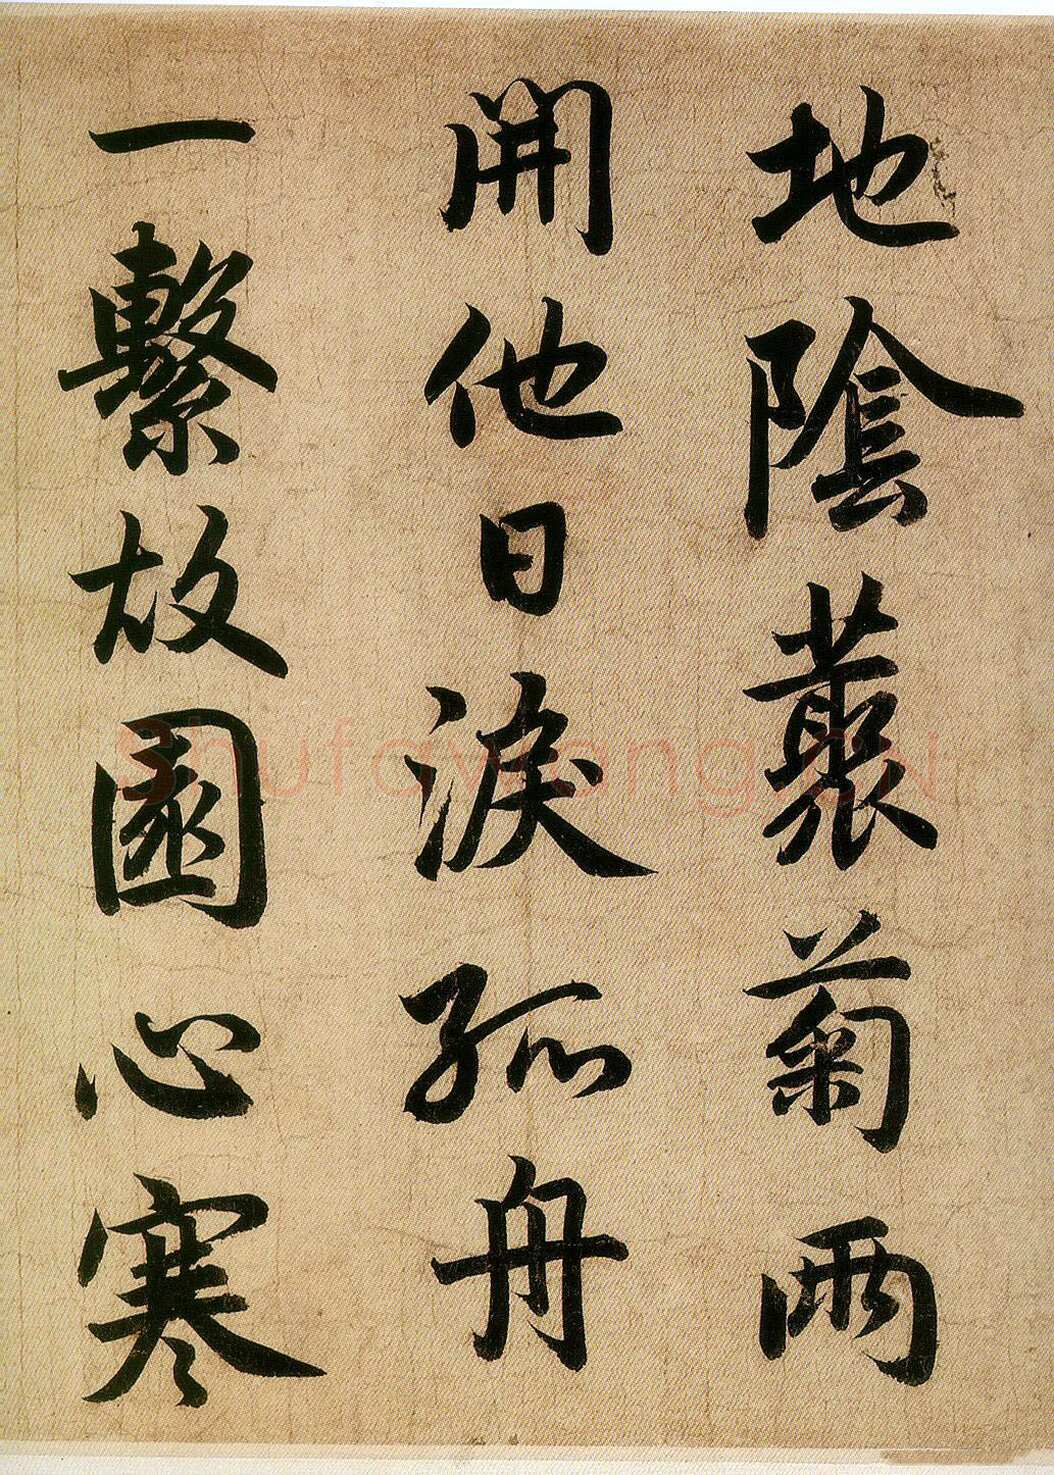 地陰叢菊兩
開他日淚孤舟
一繫故園心寒
Shufawang.CN